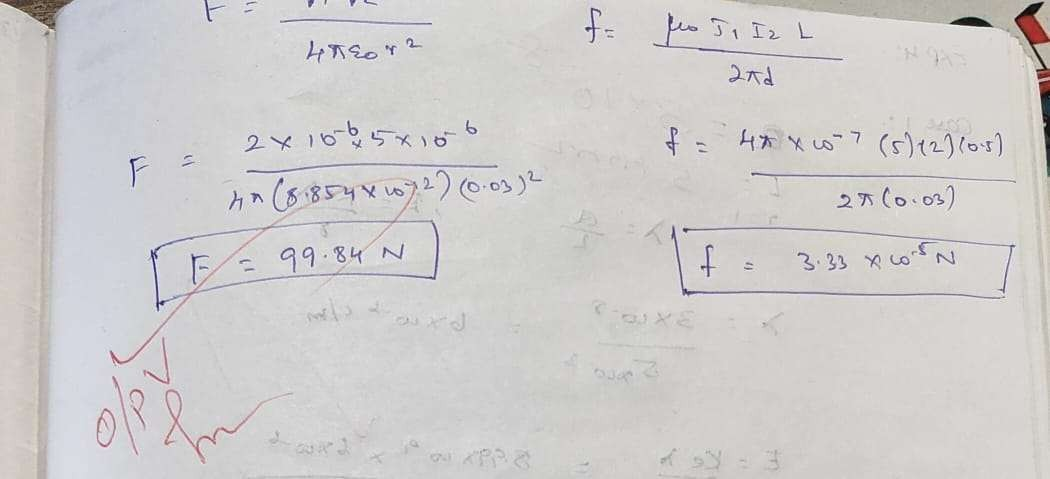 F =
4πε0r²
F = 2 × 10⁻⁶ × 5 × 10⁻⁶ / 4π (8.854 × 10⁻¹²) (0.03)²
F = 99.84 N
O/P
f = μ0 I1 I2 L / 2πd
f = 4π × 10⁻⁷ (5) (2) (0.5) / 2π (0.03)
f = 3.33 × 10⁻⁵ N